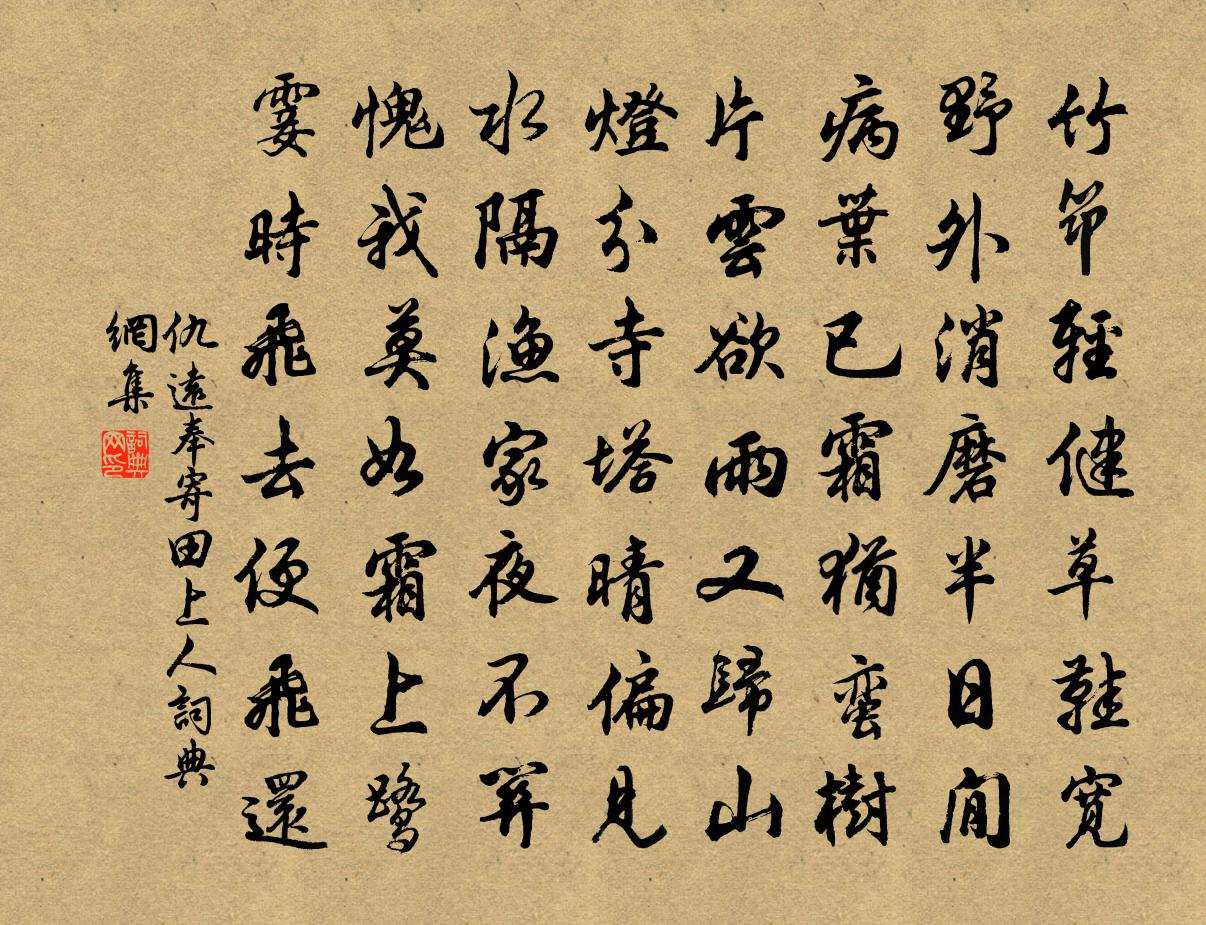 竹筇輕健草鞋寬
野外消磨半日閒
病葉已霜猶戀樹
片雲欲雨又歸山
燈分寺塔晴偏見
水隔漁家夜不關
愧我莫如霜上鷺
霎時飛去便飛還
仇遠奉寄田上人詞典
網集
詞典
网印